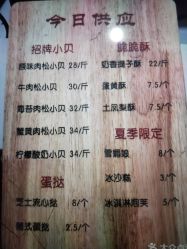 今日供应
招牌小贝
原味肉松小贝 28/斤
牛肉松小贝 30/斤
海苔肉松小贝 32/斤
蟹黄肉松小贝 34/斤
柠檬酸奶小贝 34/斤
蛋挞
芝士流心挞 8/个
葡式蛋挞 2.5/个
脆脆酥
奶香提子酥 22/斤
蛋黄酥 7.5/个
土凤梨酥 7.5/个
夏季限定
雪霸娘 8/个
冰沙糕 3/个
冰淇淋泡芙 5/个